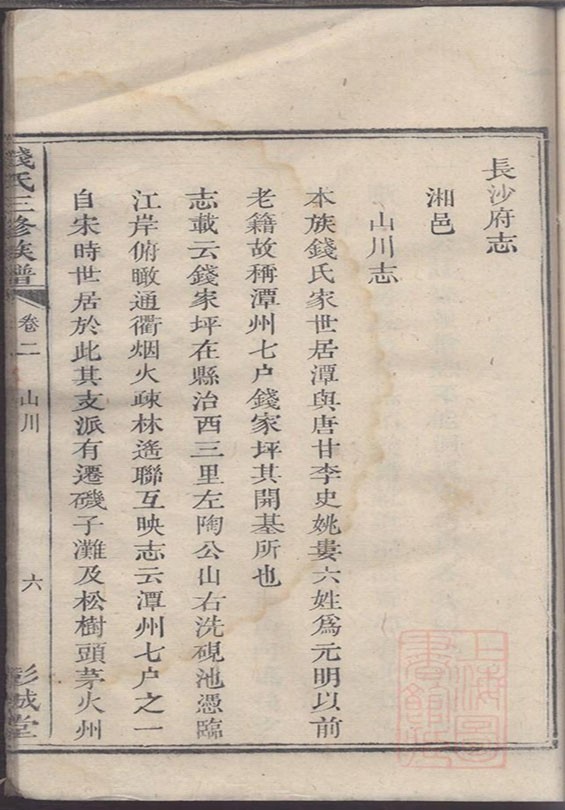 長沙府志
湘邑
山川志
本族錢氏家世居潭與唐甘李史姚婁六姓爲元明以前
老籍故稱潭州七户錢家坪其開基所也
志載云錢家坪在縣治西三里左陶公山右洗硯池憑臨
江岸俯瞰通衢烟火疎林遙聯互映志云潭州七户之一
自宋時世居於此其支派有遷磯子灘及松樹頭茅火州
錢氏三修族譜
卷二
山川
六
彭城堂
上海圖
書館藏